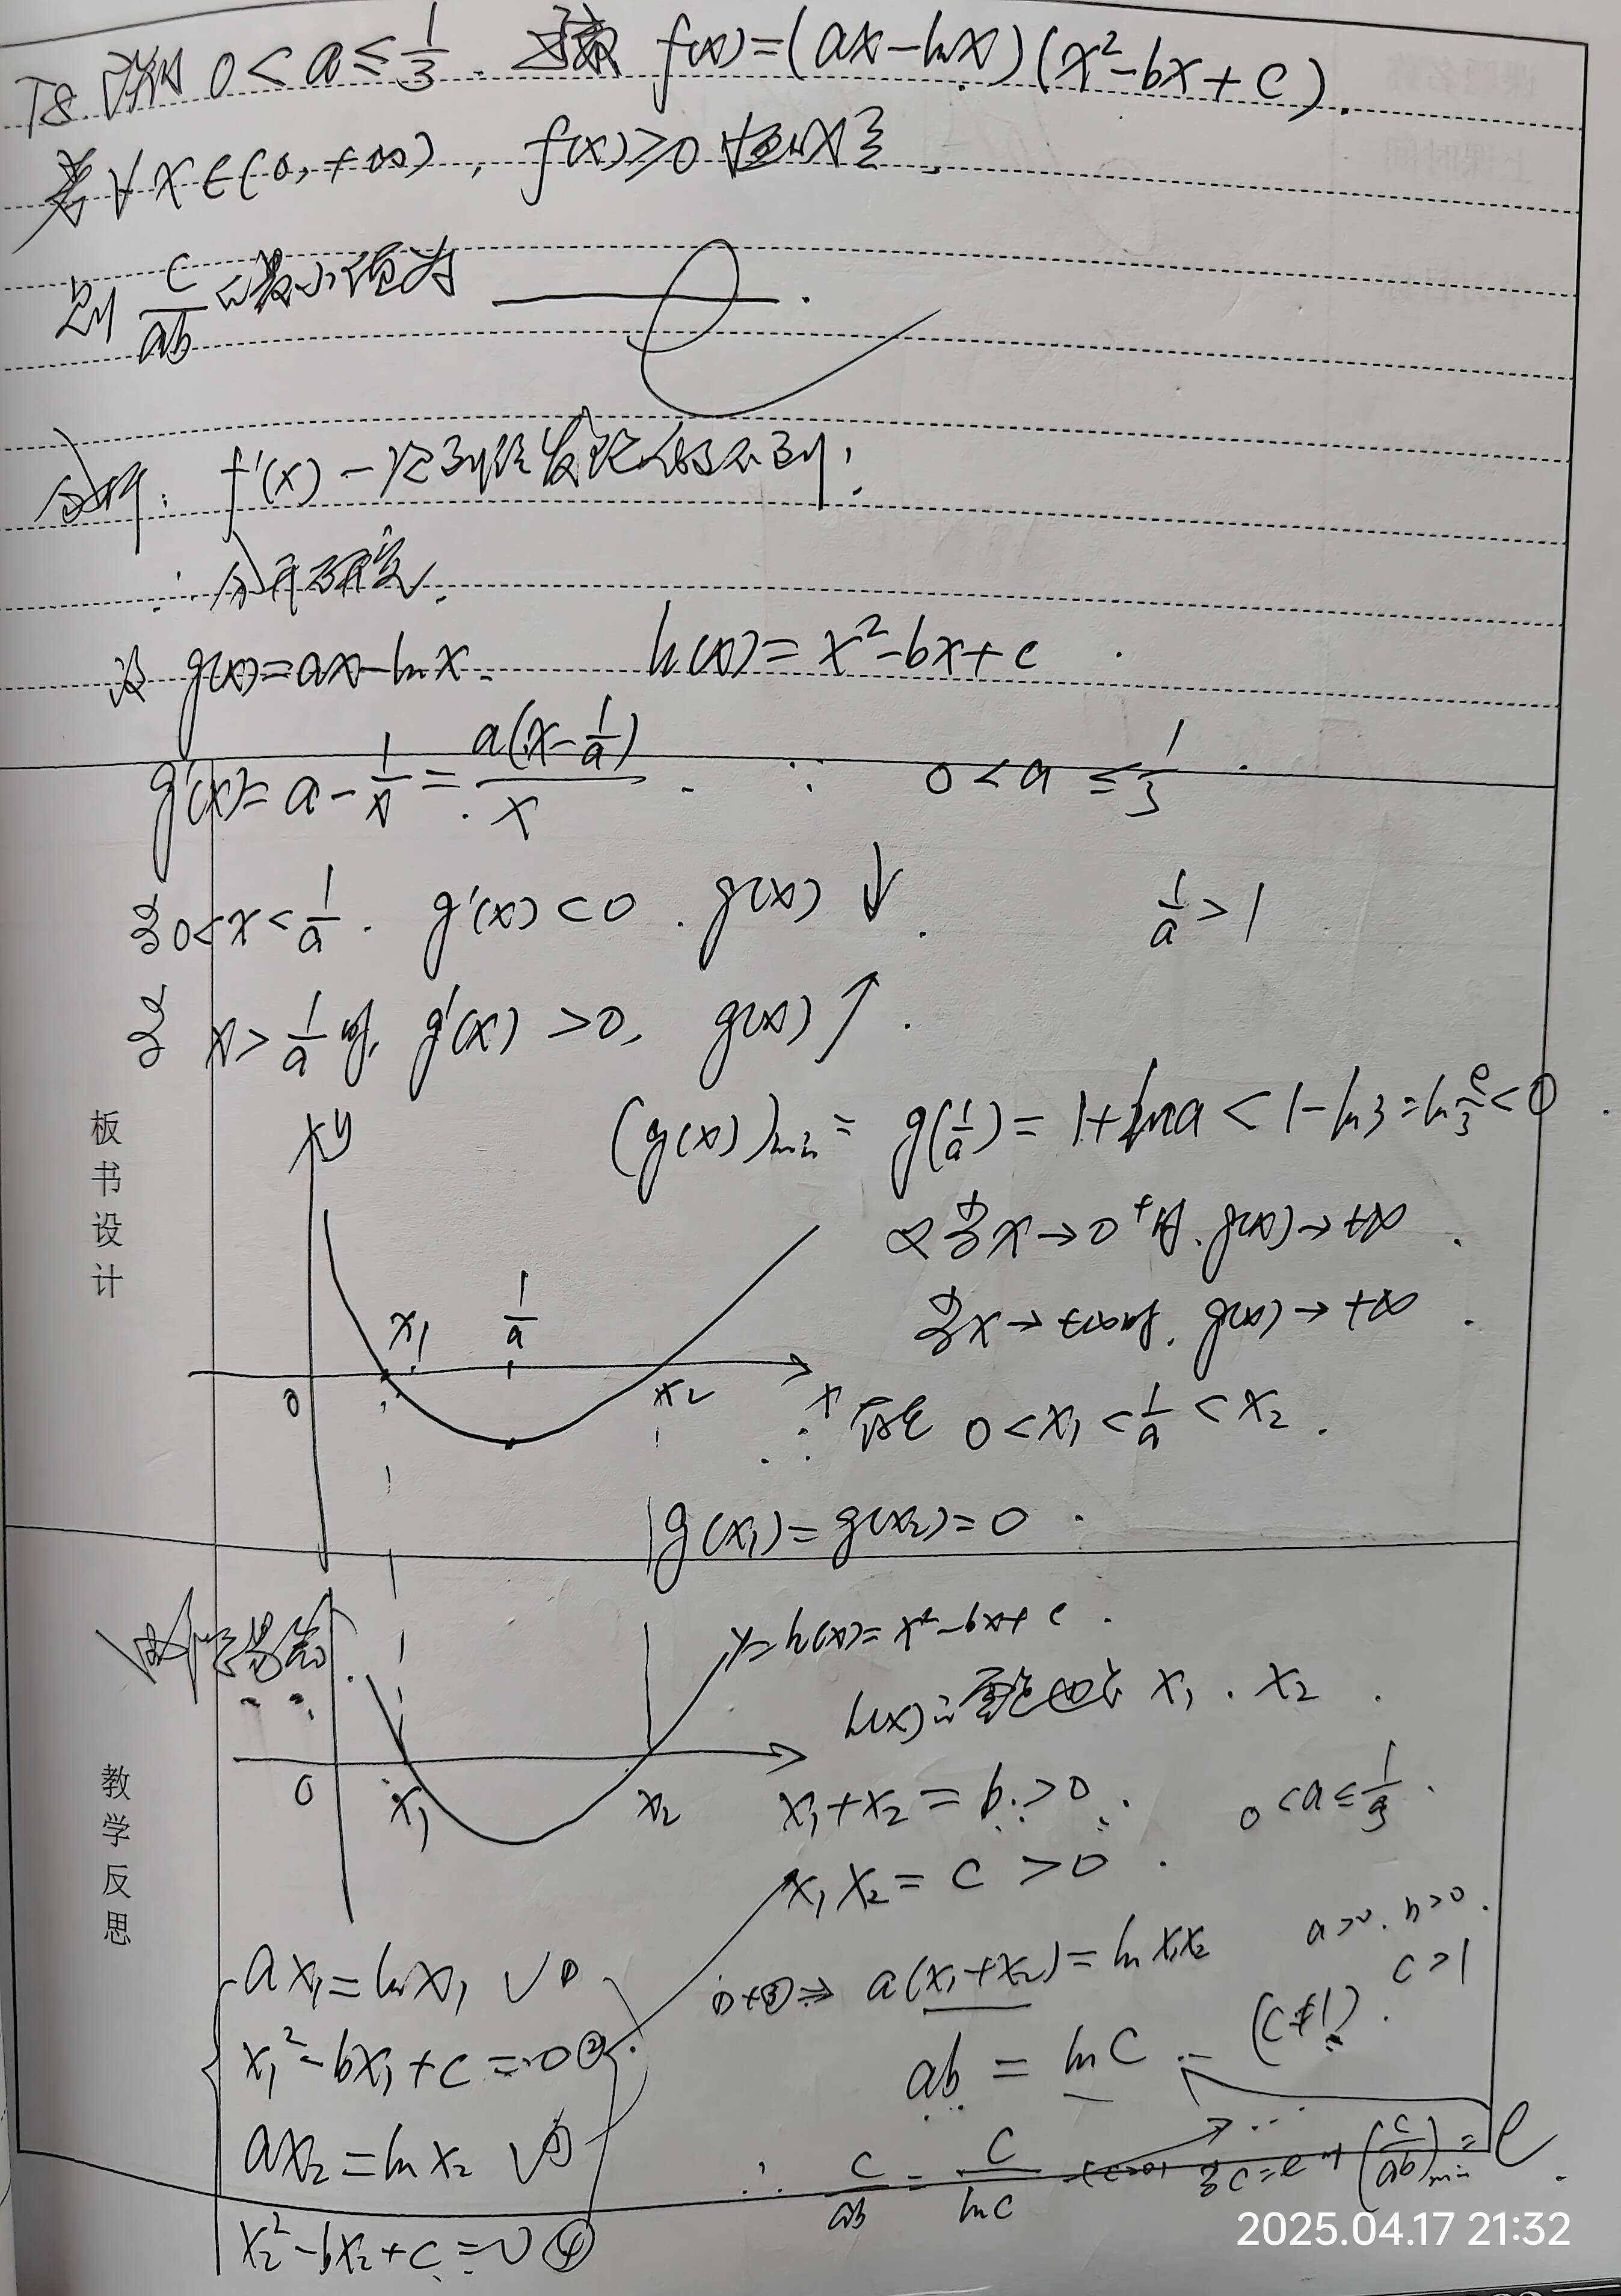 T8. 已知 0 < a ≤ 1/3. 函数 f(x)=(ax-lnx)(x²-bx+c).
若∀x∈(0,+∞), f(x)≥0 恒成立,
则 c/ab 的最小值为 e .
分析: f'(x)
∴分开研究.
设 g(x)=ax-lnx. h(x)=x²-bx+c.
g'(x)=a-1/x=a(x-1/a)/x. ∵ 0<a≤1/3.
当0<x<1/a. g'(x)<0. g(x)↓. 1/a>1
当 x>1/a时, g'(x)>0, g(x)↑.
(g(x))min = g(1/a)=1+lna<1-ln3=ln e/3<0.
又当x→0⁺时. g(x)→+∞.
当x→+∞时. g(x)→+∞.
y
x₁ 1/a x₂ x
0
∴存在 0<x₁<1/a<x₂.
g(x₁)=g(x₂)=0.
y=h(x)=x²-bx+c.
h(x)的零点也为 x₁. x₂.
0 x₁ x₂
x₁+x₂=b>0. 0<a≤1/3.
x₁x₂=c>0.
ax₁=lnx₁ √①
x₁²-bx₁+c=0②
ax₂=lnx₂ √③
x₂²-bx₂+c=0④
①+③⇒ a(x₁+x₂)=lnx₁x₂ a>0. b>0.
c>1
ab=lnc. (c≠1).
∴ c/ab=c/lnc 当c=e时(c/ab)min=e.
板书设计
教学反思
2025.04.17 21:32